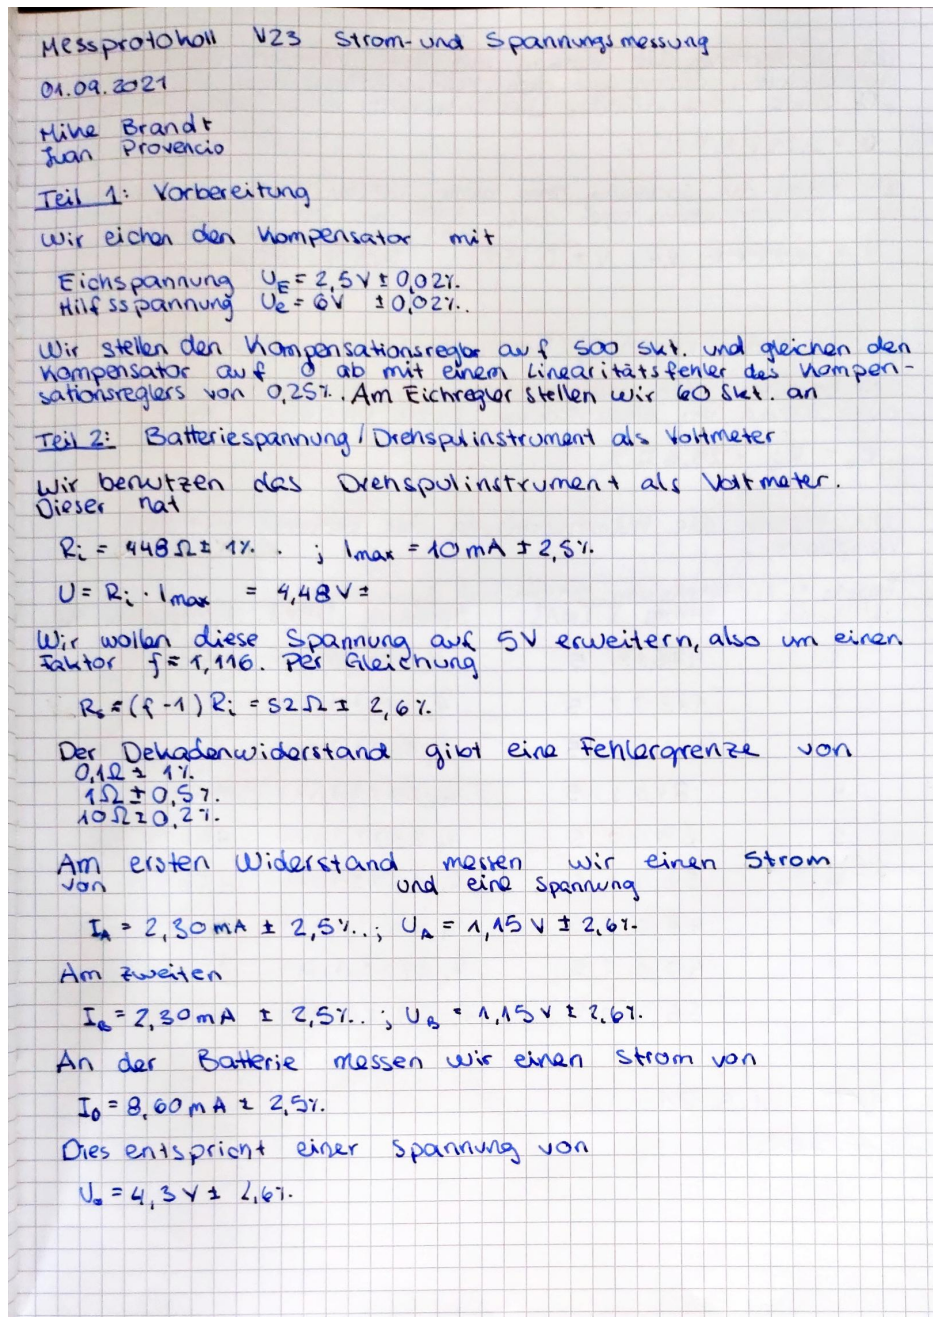 Messprotokoll V23 Strom- und Spannungsmessung
01.09.2021
Mike Brandt
Juan Provencio
Teil 1: Vorbereitung
Wir eichen den Kompensator mit
Eichspannung U_E = 2,5 V ± 0,02%.
Hilfsspannung U_e = 6V ± 0,02%.
Wir stellen den Kompensationsregler auf 500 Skt. und gleichen den
Kompensator auf 0 ab mit einem Linearitätsfehler des Kompen-
sationsreglers von 0,25%. Am Eichregler stellen wir 60 Skt. an
Teil 2: Batteriespannung / Drehspulinstrument als Voltmeter
Wir benutzen das Drehspulinstrument als Voltmeter.
Dieser hat
R_i = 448 Ω ± 1%. ; I_max = 10 mA ± 2,5%.
U = R_i · I_max = 4,48 V ±
Wir wollen diese Spannung auf 5V erweitern, also um einen
Faktor f = 1,116. Per Gleichung
R_s = (f - 1) R_i = 52 Ω ± 2,6%
Der Dekadenwiderstand gibt eine Fehlergrenze von
0,1Ω ± 1%
1Ω ± 0,5%.
10Ω ± 0,2%.
Am ersten Widerstand messen wir einen Strom
von und eine Spannung
I_A = 2,30 mA ± 2,5%.; U_A = 1,15 V ± 2,6%
Am zweiten
I_B = 2,30 mA ± 2,5%.; U_B = 1,15 V ± 2,6%.
An der Batterie messen wir einen Strom von
I_0 = 8,60 mA ± 2,5%.
Dies entspricht einer Spannung von
U_0 = 4,3 V ± 2,6%.